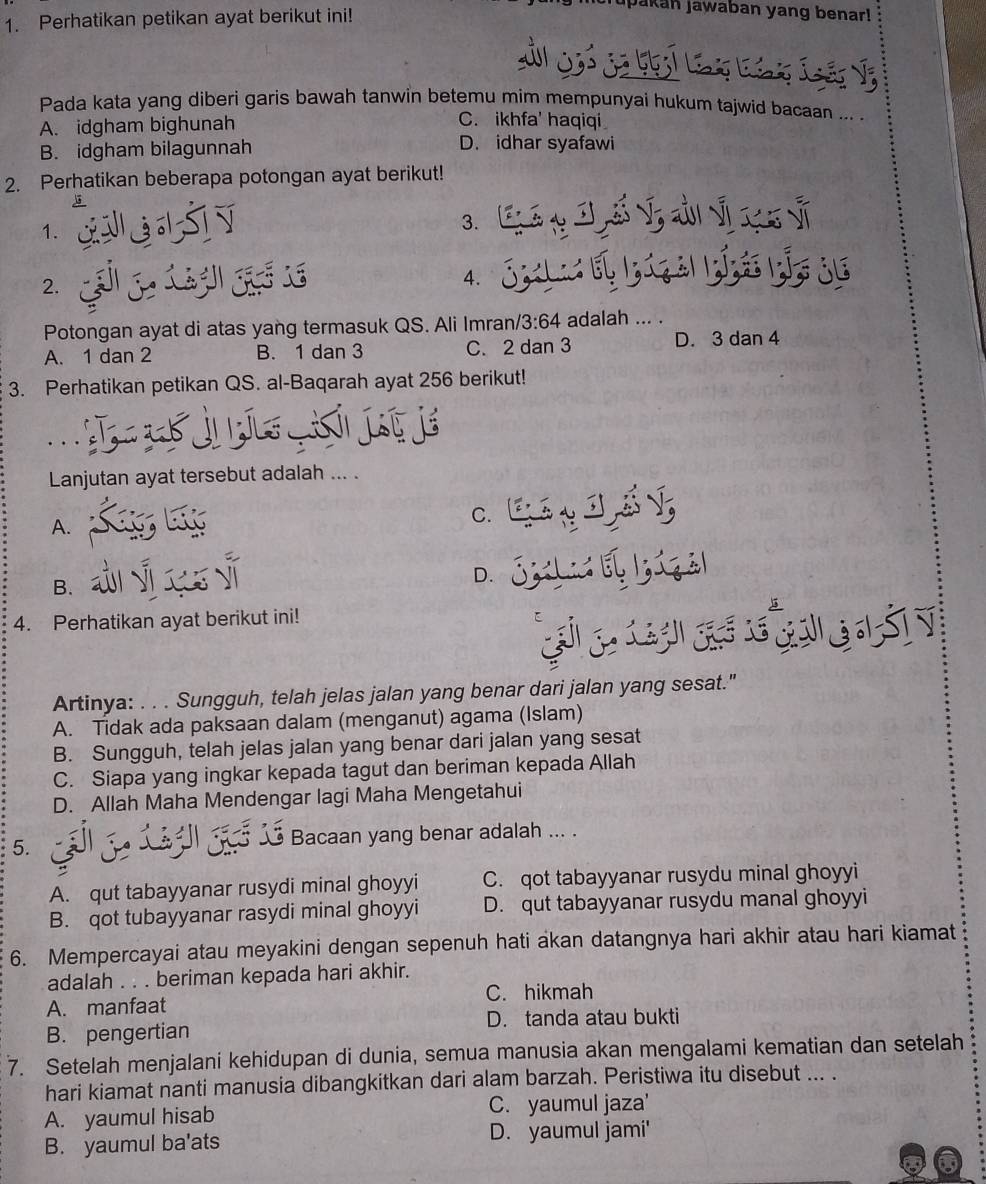 pakan jawaban yang benar!
1. Perhatikan petikan ayat berikut ini!
وَلَا يَتَّخِذَ بَعْضُنَا بَعْضًا أَرْبَابًا مِّنْ دُوْنِ اللّٰهِ
Pada kata yang diberi garis bawah tanwin betemu mim mempunyai hukum tajwid bacaan ... .
A. idgham bighunah C. ikhfa' haqiqi
B. idgham bilagunnah D. idhar syafawi
2. Perhatikan beberapa potongan ayat berikut!
1. لَآ اِكْرَاهَ فِى الدِّيْنِۗ 3. اَلَّا نَعْبُدَ اِلَّا اللّٰهَ وَلَا نُشْرِكَ بِهٖ شَيْـًٔا
2. قَدْ تَّبَيَّنَ الرُّشْدُ مِنَ الْغَيِّ 4. فَاِنْ تَوَلَّوْا فَقُوْلُوا اشْهَدُوْا بِاَنَّا مُسْلِمُوْنَ
Potongan ayat di atas yang termasuk QS. Ali Imran/3:64 adalah ... .
A. 1 dan 2 B. 1 dan 3 C. 2 dan 3 D. 3 dan 4
3. Perhatikan petikan QS. al-Baqarah ayat 256 berikut!
قُلْ يٰٓاَهْلَ الْكِتٰبِ تَعَالَوْا اِلٰى كَلِمَةٍ سَوَاۤءٍ . . .
Lanjutan ayat tersebut adalah ... .
A. بَيْنَنَا وَبَيْنَكُمْ C. وَلَا نُشْرِكَ بِهٖ شَيْـًٔا
B. اَلَّا نَعْبُدَ اِلَّا اللّٰهَ D. اشْهَدُوْا بِاَنَّا مُسْلِمُوْنَ
4. Perhatikan ayat berikut ini!
لَآ اِكْرَاهَ فِى الدِّيْنِۗ قَدْ تَّبَيَّنَ الرُّشْدُ مِنَ الْغَيِّۚ
Artinya: . . . Sungguh, telah jelas jalan yang benar dari jalan yang sesat."
A. Tidak ada paksaan dalam (menganut) agama (Islam)
B. Sungguh, telah jelas jalan yang benar dari jalan yang sesat
C. Siapa yang ingkar kepada tagut dan beriman kepada Allah
D. Allah Maha Mendengar lagi Maha Mengetahui
5. قَدْ تَّبَيَّنَ الرُّشْدُ مِنَ الْغَيِّ Bacaan yang benar adalah ... .
A. qut tabayyanar rusydi minal ghoyyi C. qot tabayyanar rusydu minal ghoyyi
B. qot tubayyanar rasydi minal ghoyyi D. qut tabayyanar rusydu manal ghoyyi
6. Mempercayai atau meyakini dengan sepenuh hati akan datangnya hari akhir atau hari kiamat
adalah . . . beriman kepada hari akhir.
A. manfaat C. hikmah
B. pengertian D. tanda atau bukti
7. Setelah menjalani kehidupan di dunia, semua manusia akan mengalami kematian dan setelah
hari kiamat nanti manusia dibangkitkan dari alam barzah. Peristiwa itu disebut ... .
A. yaumul hisab C. yaumul jaza'
B. yaumul ba'ats D. yaumul jami'